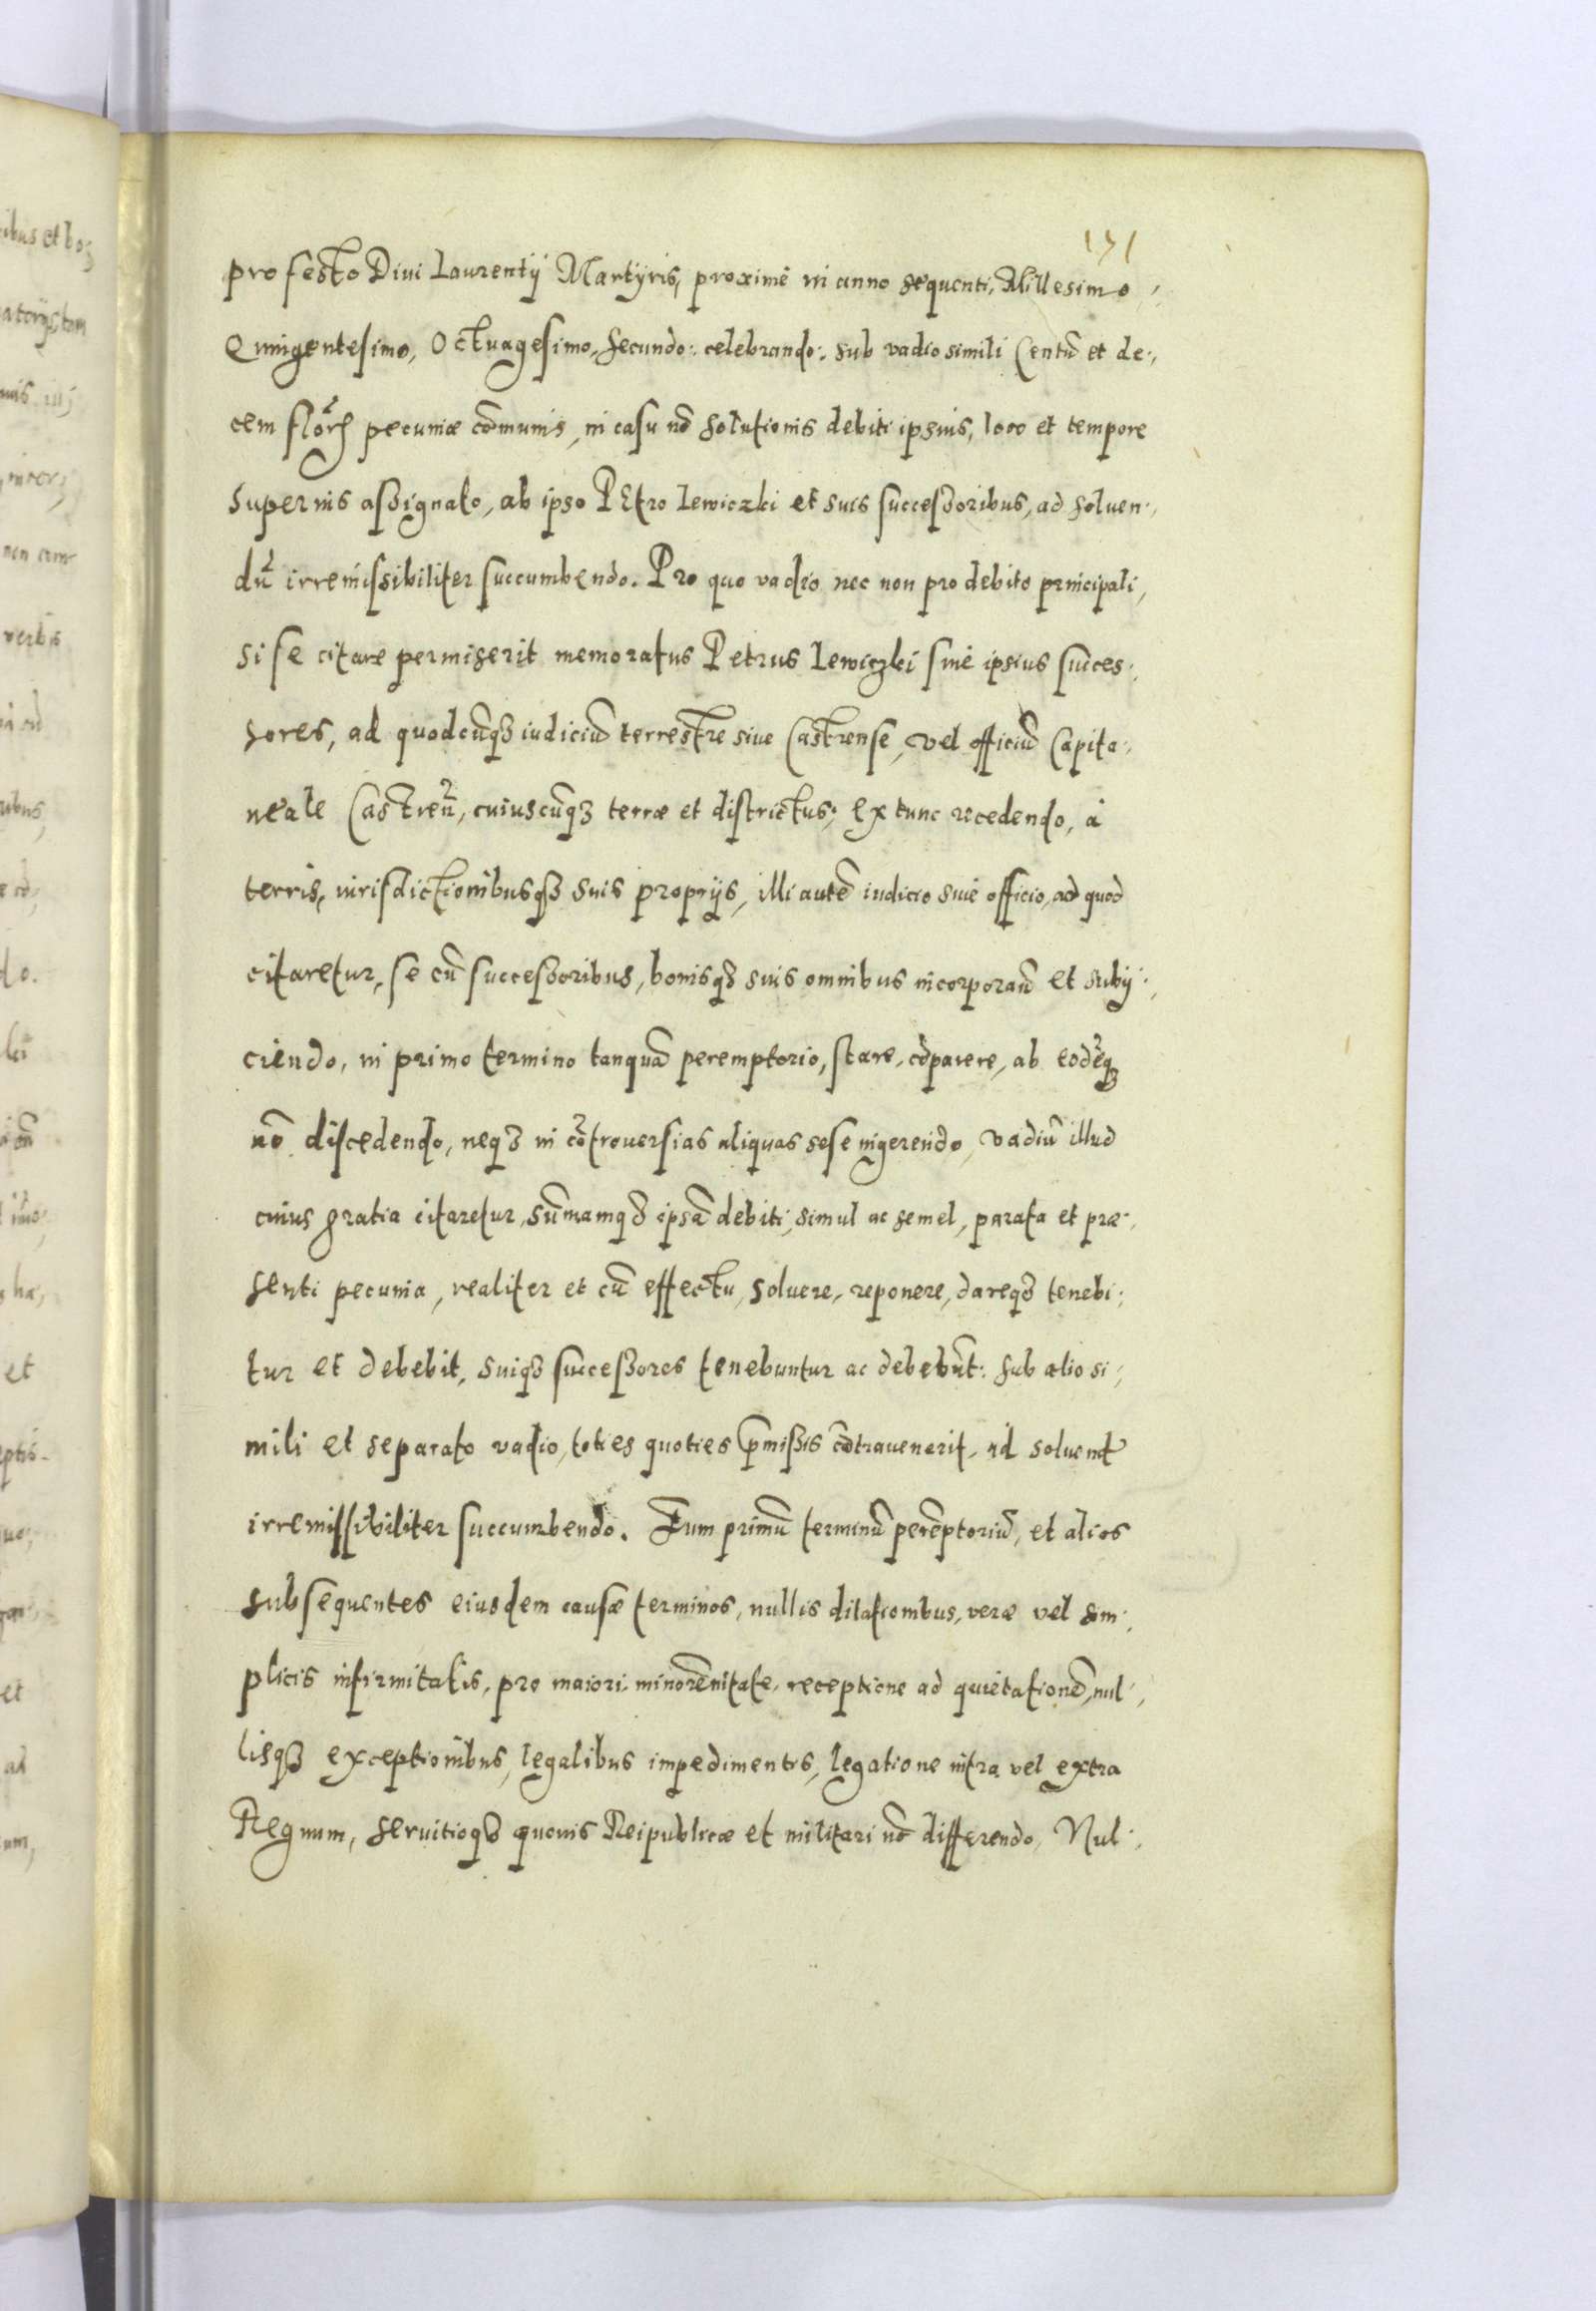 171
pro festo Diui Laurentij Martyris, proximé in anno sequenti, Millesimo,
Quingentesimo, Octuagesimo, secundo: celebrando: sub vadio simili Centũ et de:,
cem florẽ pecuniæ cõmunis, in casu nõ solutionis debiti ipsius, loco et tempore
superius assignato, ab ipso PEtro Lewiczki et suis successoribus, ad soluen:,
dũ irremissibiliter succumbendo. Pro quo vadio nec non pro debito principali,
si se citare permiserit memoratus Petrus Lewiczki siué ipsius succes:,
sores, ad quodcũqȝ iudiciũ terrestre siue Castrense, vel officiũ Capita:,
neale Castreñ, cuiuscũqȝ terræ et districtus: ex tunc recedendo, á
terris, iurisdictionibusqȝ suis proprijs, illi autẽ iudicio siué officio, ad quod
citaretur, se cũ successoribus, bonisqȝ suis omnibus incorporañ et subij:,
ciendo, in primo termino tanquã peremptorio, stare, cõparere, ab eodẽqȝ
nõ discedendo, neqȝ in cõtrouersias aliquas sese ingerendo, vadiũ illud
cuius gratia citaretur, sũmamqȝ ipsã debiti, simul ac semel, parata et præ:,
senti pecunia, realiter et cũ effectu, soluere, reponere, dareqȝ tenebi:,
tur et debebit, suiqȝ successores tenebuntur ac debebũt: sub alio si:,
mili et separato vadio, toties quoties p̃missis cõtrauenerit, ad soluend
irremissibiliter succumbendo. Eum primũ terminũ perẽptoriũ, et alios
subsequentes eiusdem causæ terminos, nullis dilationibus, veræ vel sim:,
plicis infirmitatis, pro maiori, minorẽnitate, receptione ad quietationẽ, nul:,
lisqȝ exceptionibus, legalibus impedimentis, legatione intra vel extra
Regnum, seruitioqȝ quouis Reipublicæ et militari nõ differendo, Nul:,